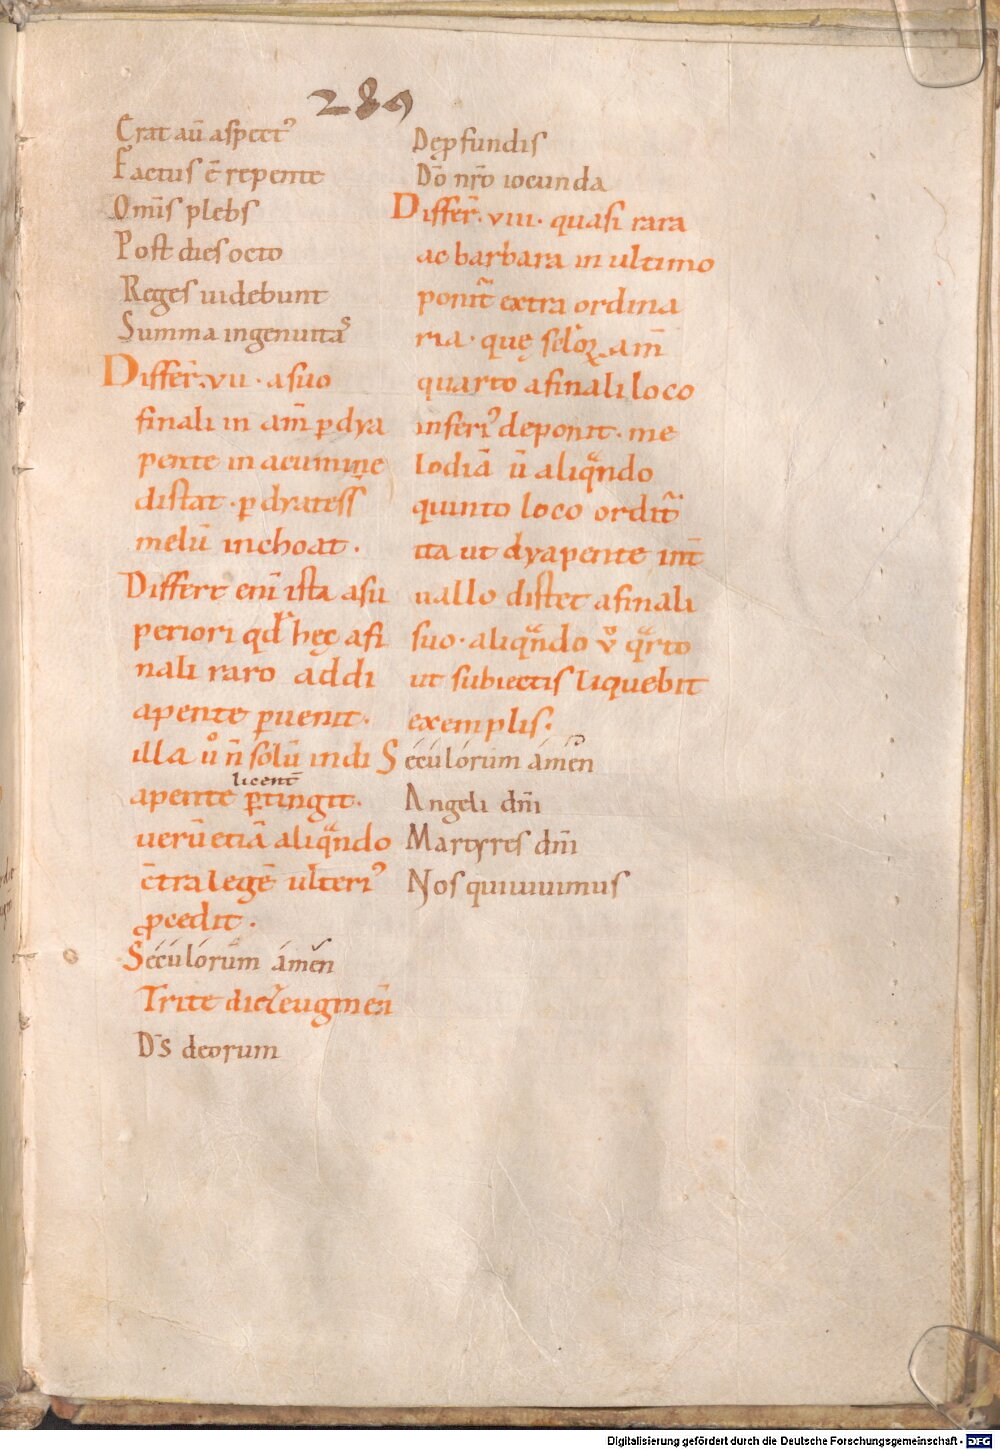 289
Erat aū aspect᾽
Factus ē repente
Om̄is plebs
Post dies octo
Reges uidebunt
Summa ingenuitas
Differ̄. vii. a suo
finali in am̄ p dya
pente in acumine
distat. p dyatess̄
melū inchoat.
Differt eni̅ ista a su
periori qd hec̨ a fi
nali raro ad di
apente puenit.
illa ůn̄ solū in di
licent̄
apente ptingit.
uerū etiā aliqͣndo
c̄tra legē ulteri᾽
pcedit.
Sécúlórúm ámén
Trite die
D̄s deorum
De̜ pfundis
Dō nr̄o iocunda
Differ̄. viii. quasi rara
ac barbara in ultimo
ponit̄ extra ordina
ria. que̜ am̄
quarto a finali loco
inferi᾽ deponit. me
lodiā ū aliqͣndo
quinto loco ordit̄
ita ut dyapente int̄
uallo distet a finali
suo. aliqͣndo v̊ qͣrto
ut subiectis liquebit
exemplis.
Sécúlórúm ámén
Angeli dn̄i
Martyres dn̄i
Nos qui uiuimus
Digitalisierung gefördert durch die Deutsche Forschungsgemeinschaft - DFG